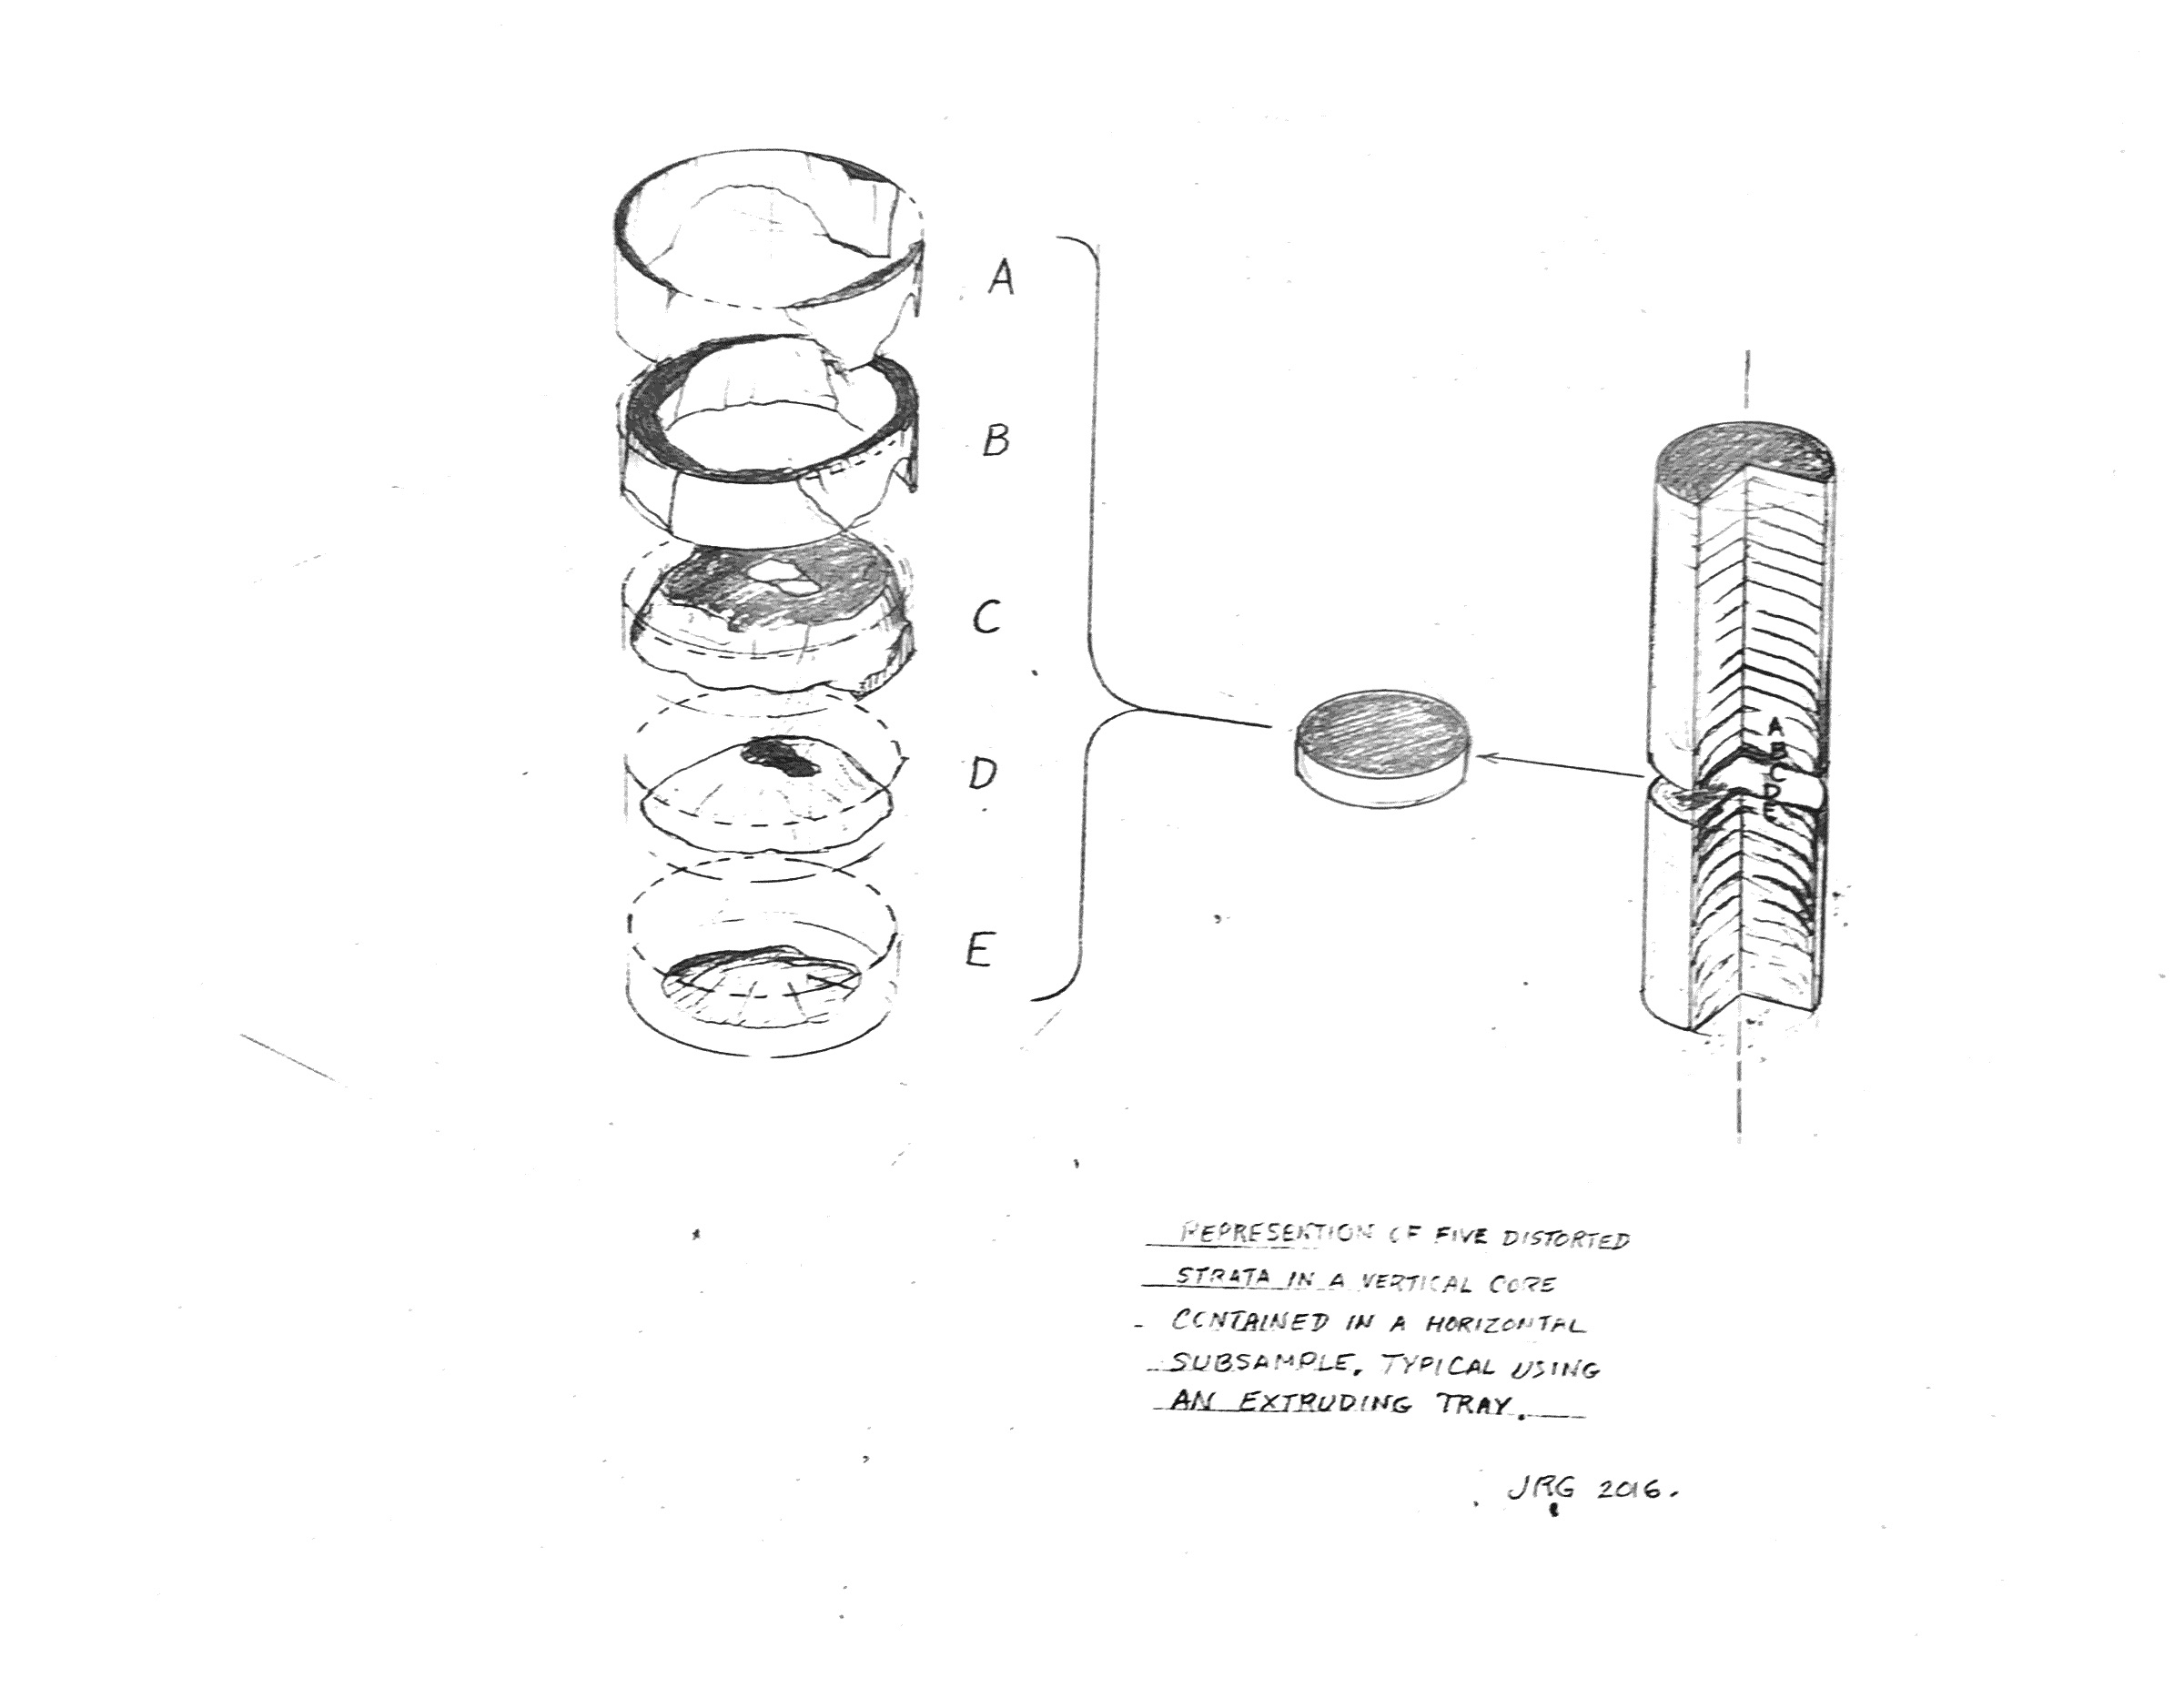 A
B
C
D
E
A
B
C
D
E
REPRESENTION OF FIVE DISTORTED
STRATA IN A VERTICAL CORE
CONTAINED IN A HORIZONTAL
SUBSAMPLE, TYPICAL USING
AN EXTRUDING TRAY.
JRG 2016.